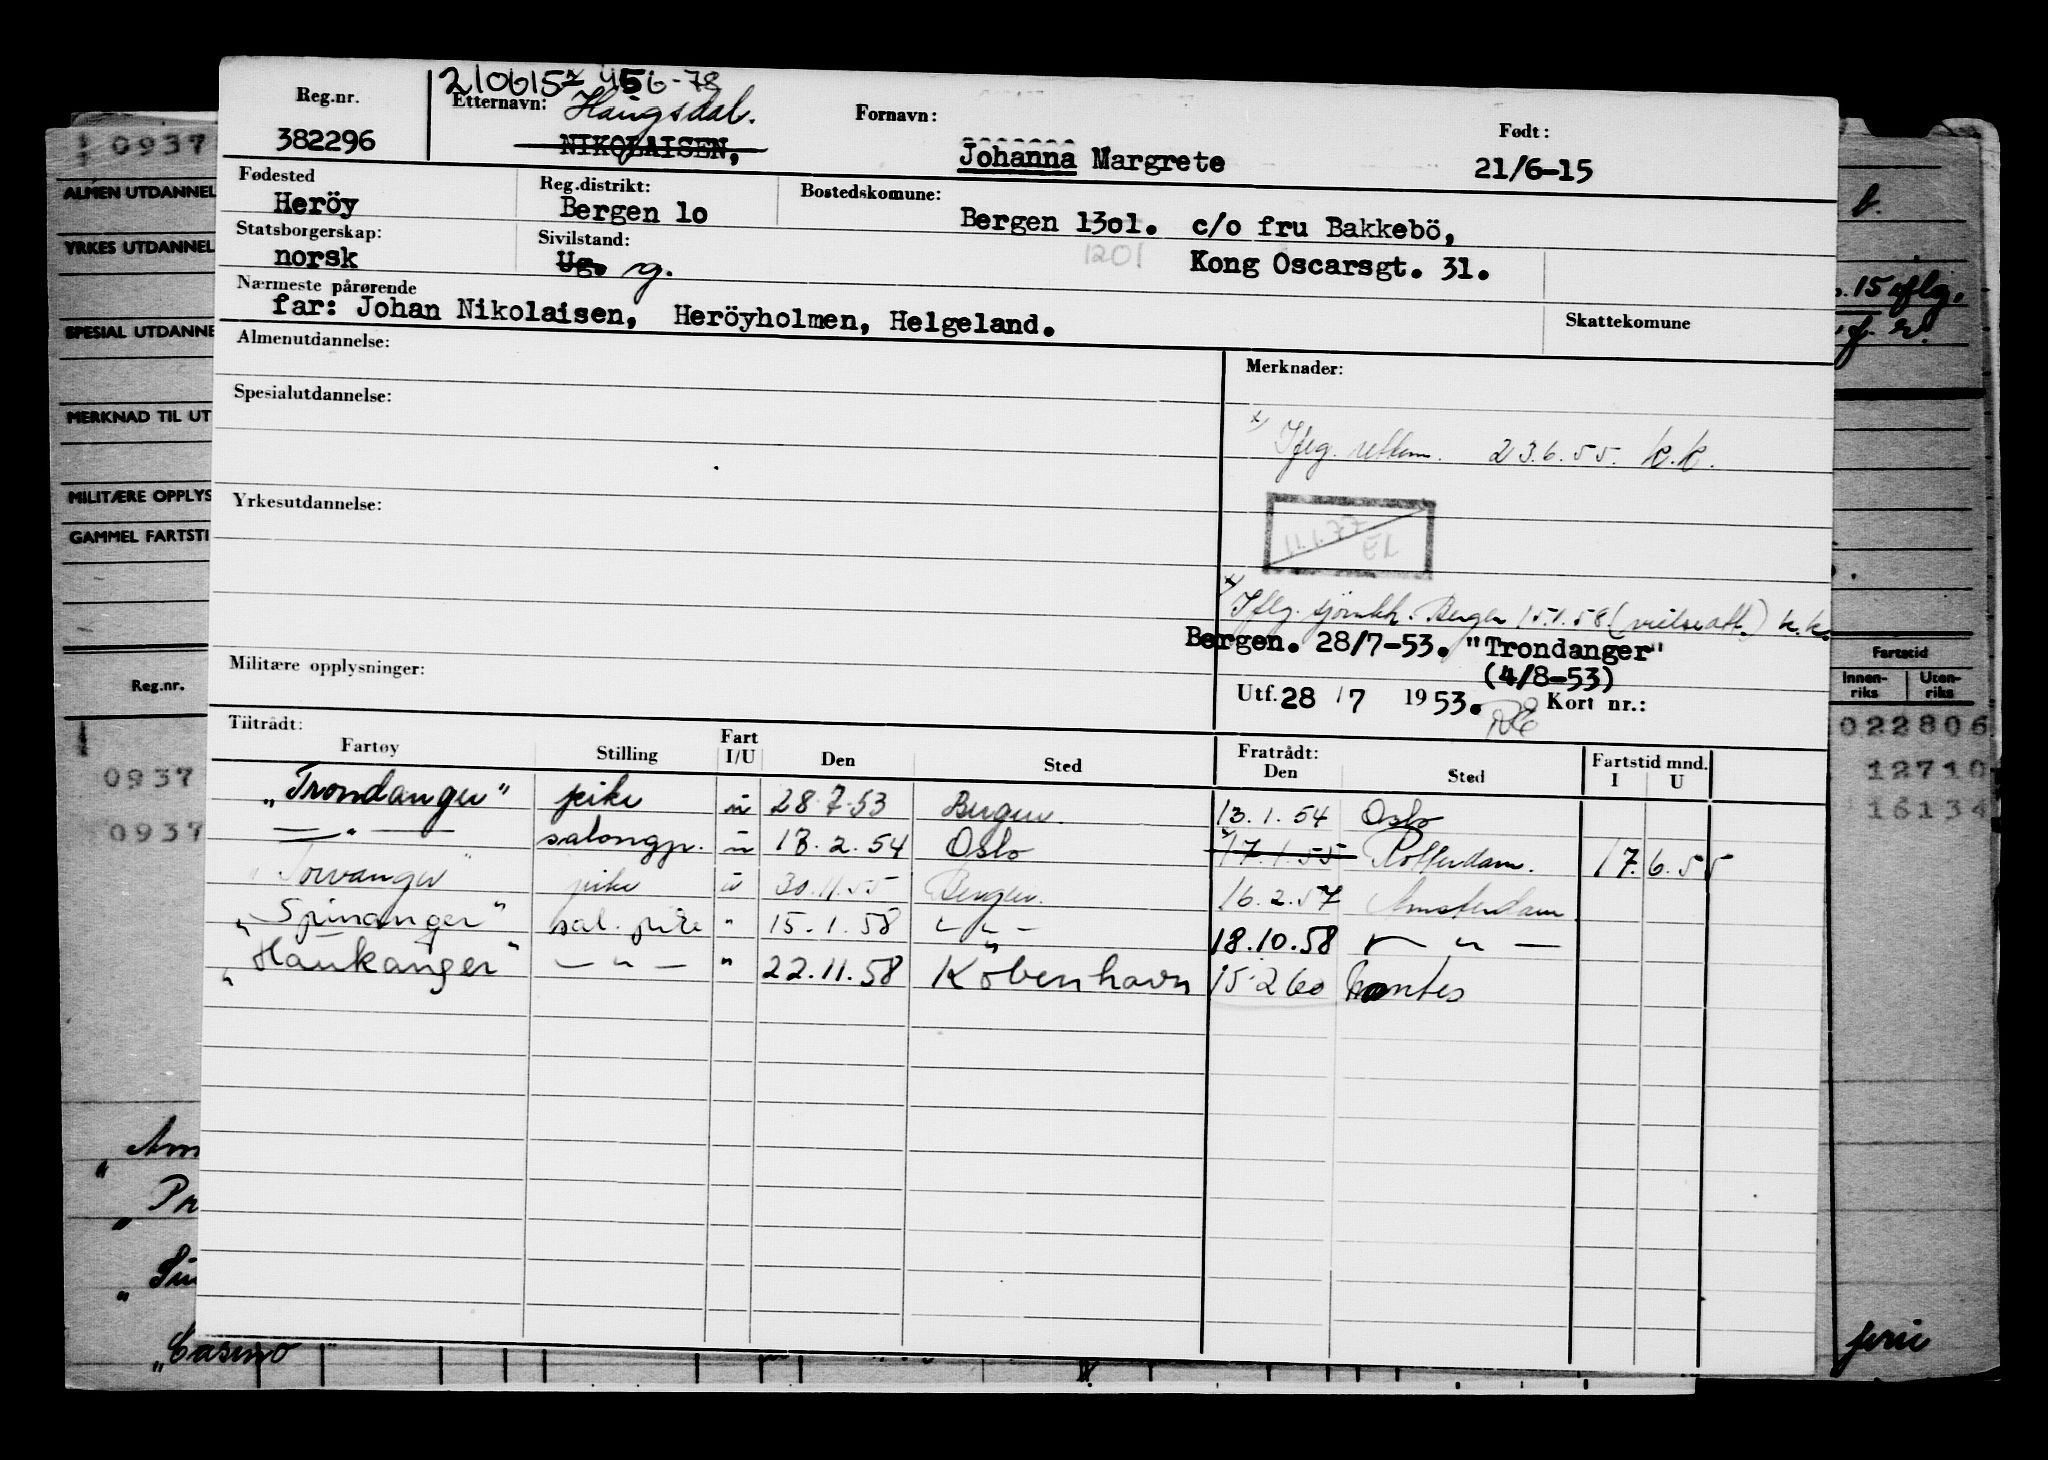 210615 456-78
Reg.nr.
Etternavn: Haugsdal.
Fornavn:
Født:
382296
NIKOLAISEN,
Johanna Margrete
21/6-15
Fødested
Reg.distrikt:
Bostedskomune:
Heröy
Bergen lo
Bergen 13ol. c/o fru Bakkebö,
Statsborgerskap:
Sivilstand:
1201
norsk
Ug. g.
Kong Oscarsgt. 31.
Nærmeste pårørende
far: Johan Nikolaisen, Heröyholmen, Helgeland.
Skattekomune
Almenutdannelse:
Merknader:
Spesialutdannelse:
x) Iflg. 23.6.55. k.k.
Yrkesutdannelse:
11.1.77
EL
x) Iflg. sjömkk. Bergen 15.1.58. (vielseatt.) k.k.
Bergen. 28/7-53. "Trondanger"
(4/8-53)
Militære opplysninger:
Utf. 28 / 7 1953. Kort nr.:
Tiltrådt:
Fratrådt:
Fartøy Stilling Fart I/U Den Sted Den Sted Fartstid mnd. I U
"Trondanger" pike u 28.7.53 Bergen. 13.1.54 Oslo
— " — salongp. u 13.2.54 Oslo 17.1.55 Rotterdam. 17.6.55
"Torvanger" pike u 30.11.55 Bergen. 16.2.57 Amsterdam
"Spinanger" sal. pike " 15.1.58 — " — 18.10.58 — " —
"Haukanger" — " — " 22.11.58 København 15.2.60 Nantes
0937
ALMEN UTDANNEL
YRKES UTDANNEL
SPESIAL UTDANNE
MERKNAD TIL UT
MILITÆRE OPPLYS
GAMMEL FARTSTI
Reg.nr.
0937
0937
15 iflg.
Fartstid
Innen-riks
Uten-riks
022806
12710
16134
"Casino"